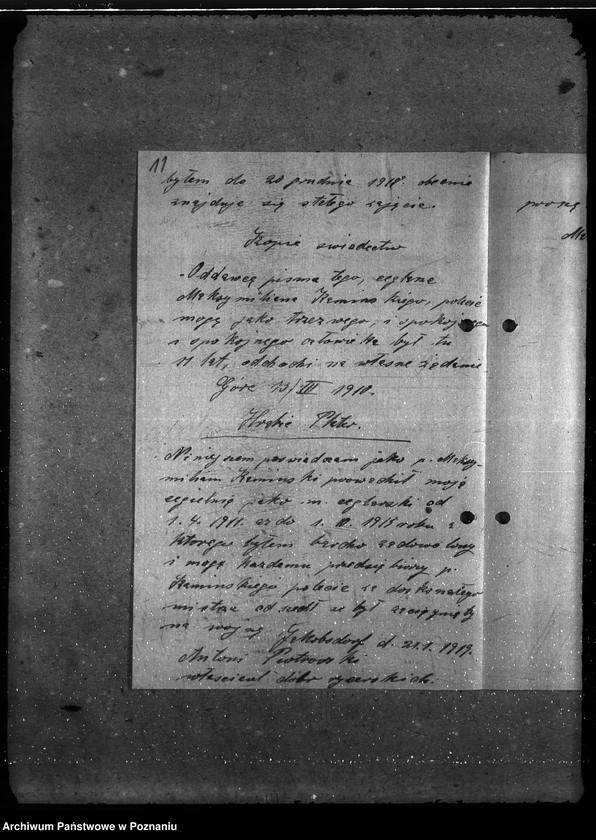 11
byłem do 20 grudnia 1918. obecnie
znajduję się stałego zajęcia.
prosz
Kopie świadectw
Ma
Oddawcę pisma tego,
Maksymiliana Kaminskiego, polecić
mogę jako trzezwego, i spokojnego
i spokojnego człowieka był tu
11 lat, odchodzi na własne żądanie
Góra 13/III 1910.
Hrabia Plater.
Niniejszem poswiadczam jako p. Maksy-
milian Kaminski prowadził moją
cegielnię jako m. ceglarski od
1. 4. 1911. aż do 1. 1915 roku z
którego byłem bardzo zadowolony
i mogę każdemu p.
Kaminskiego polecić za doskonałego
mistrza odszedł że był zaciągnięty
na wojnę
Jakobsdorf d. 21.1.1919.
Antoni Piotrowski
właściciel dóbr rycerskich.
Archiwum Państwowe w Poznaniu